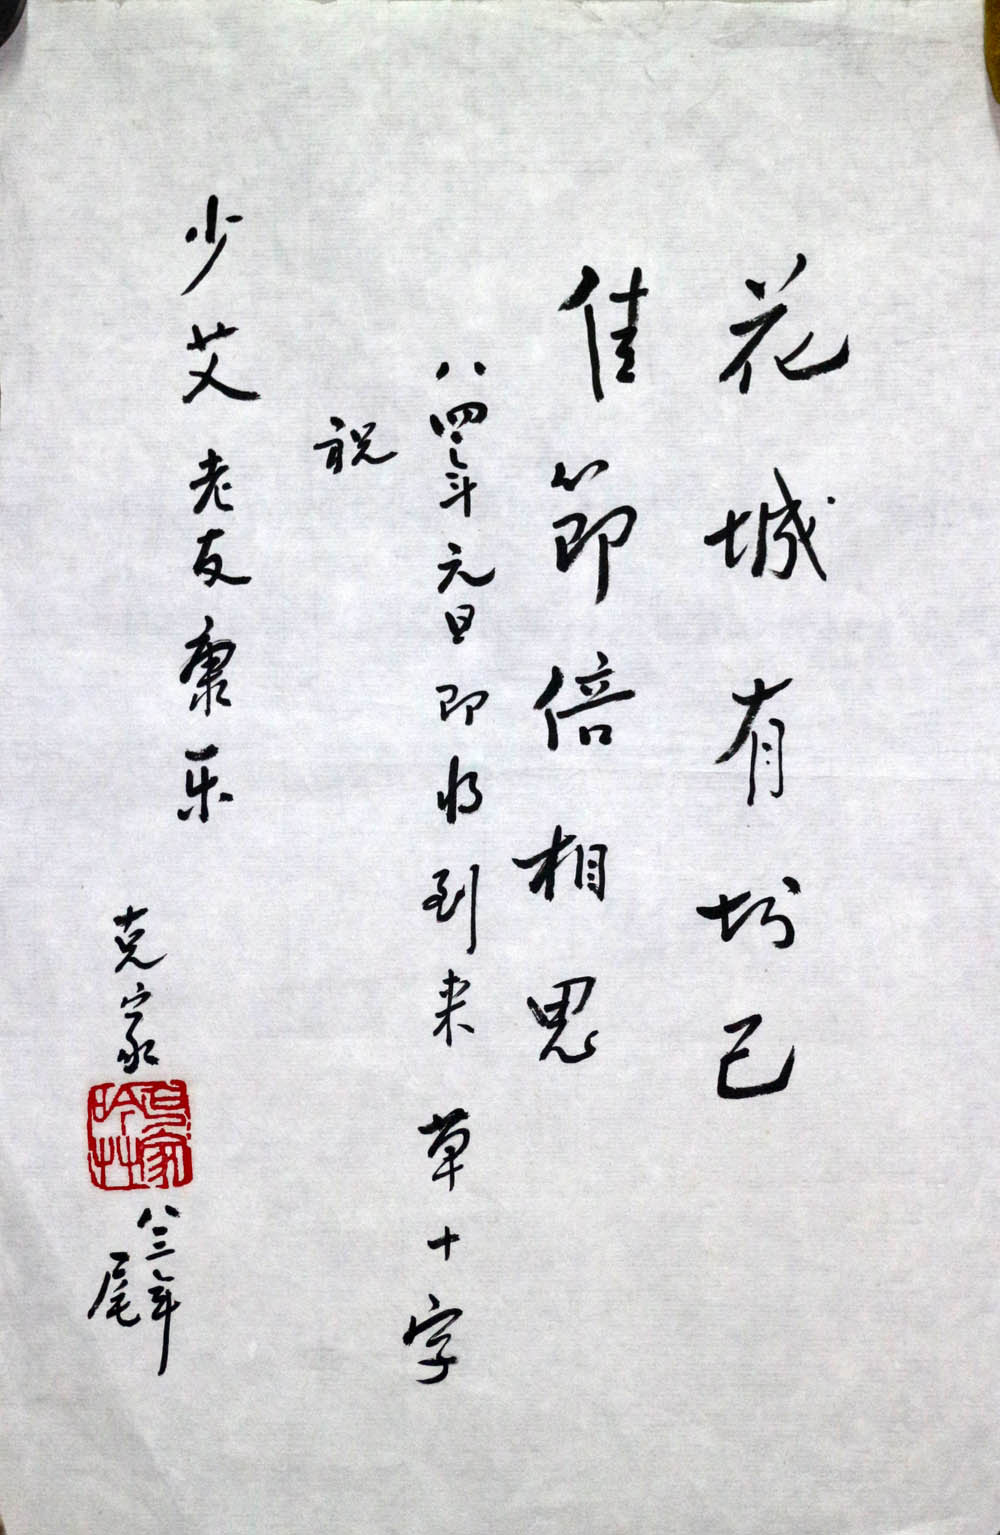 花城有知己
佳節倍相思
八四年元旦即将到来 草十字
祝
少艾老友康乐
克家
八三年
尾